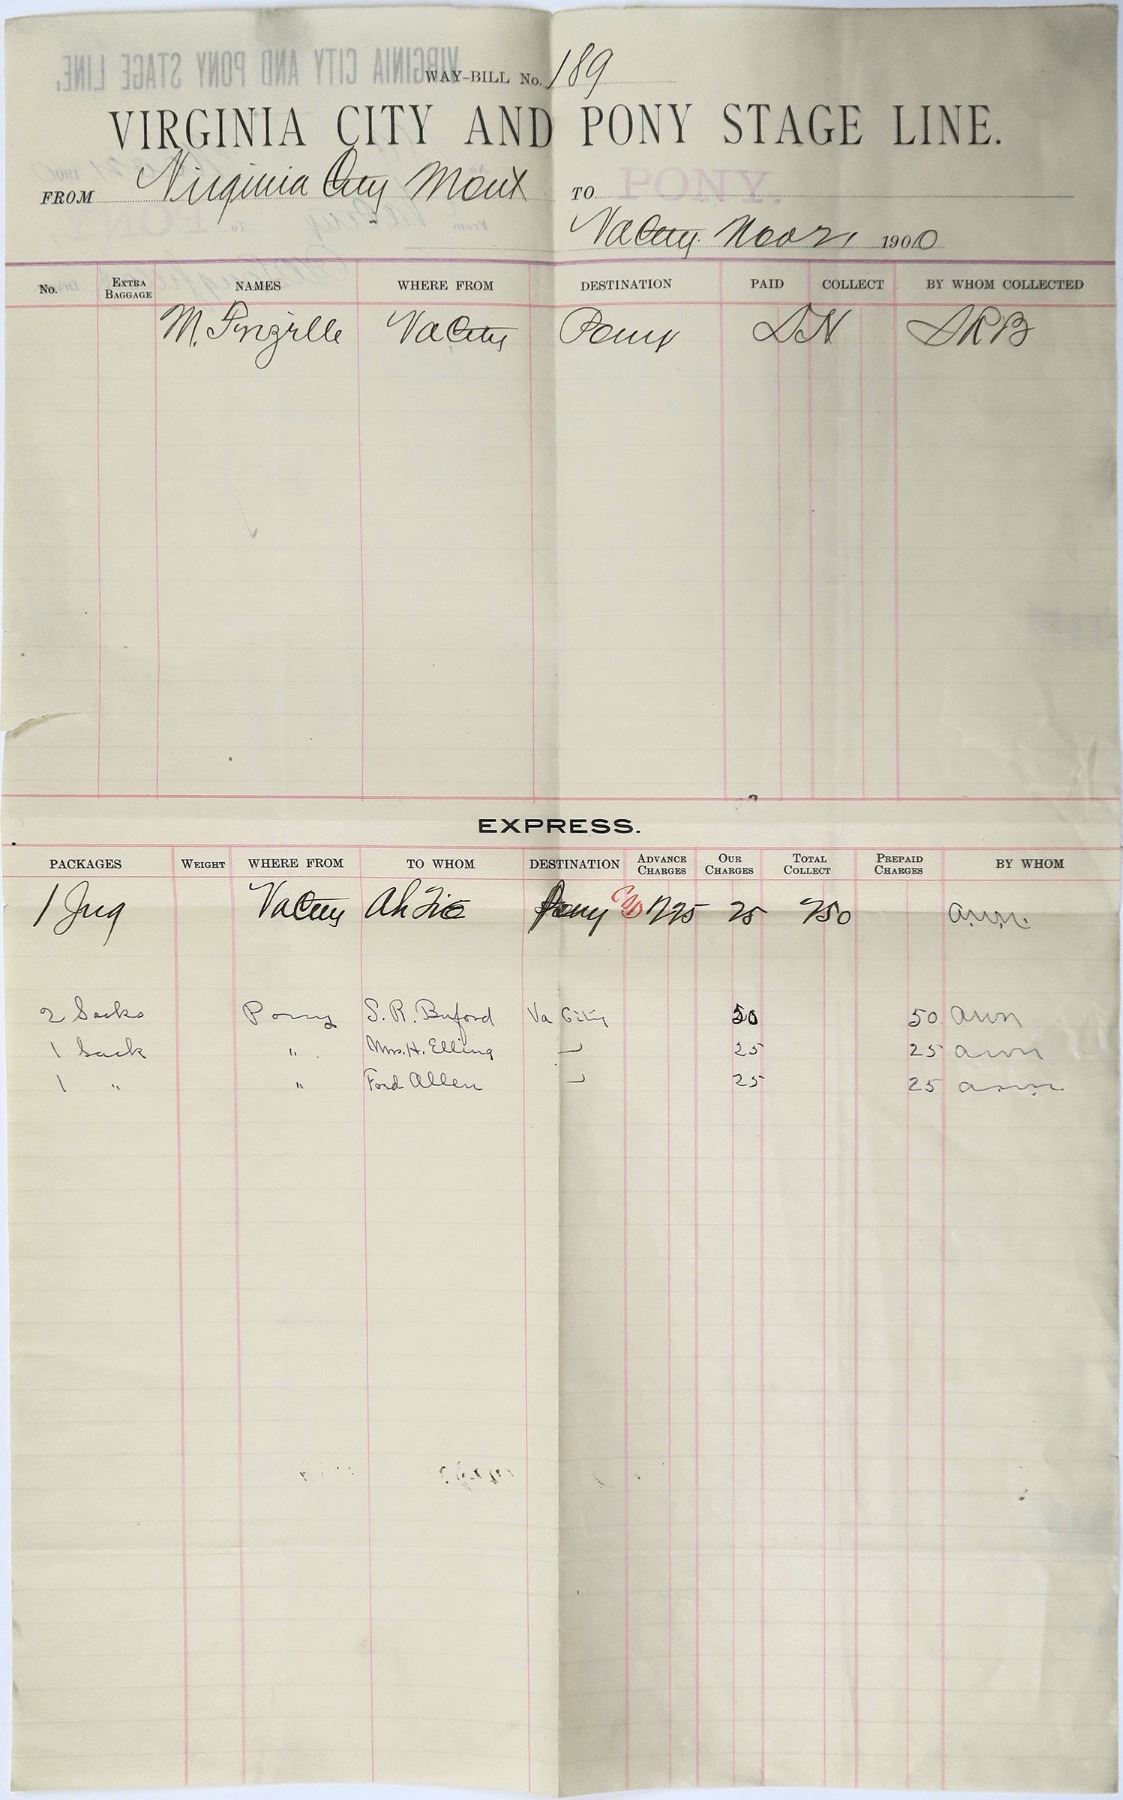 WAY-BILL No. 189
VIRGINIA CITY AND PONY STAGE LINE.
FROM Virginia City Mont TO PONY.
Va City Nov 21 1900
No. EXTRA BAGGAGE NAMES WHERE FROM DESTINATION PAID COLLECT BY WHOM COLLECTED
M. Va City Pony SRB
EXPRESS.
PACKAGES WEIGHT WHERE FROM TO WHOM DESTINATION ADVANCE CHARGES OUR CHARGES TOTAL COLLECT PREPAID CHARGES BY WHOM
1 Jug Va City Ah Pony 725 25 750
2 Sacks Pony S. R. Buford Va City 50 50
1 Sack " Mrs. H. Elling 25 25
1 " " Ford Allen 25 25